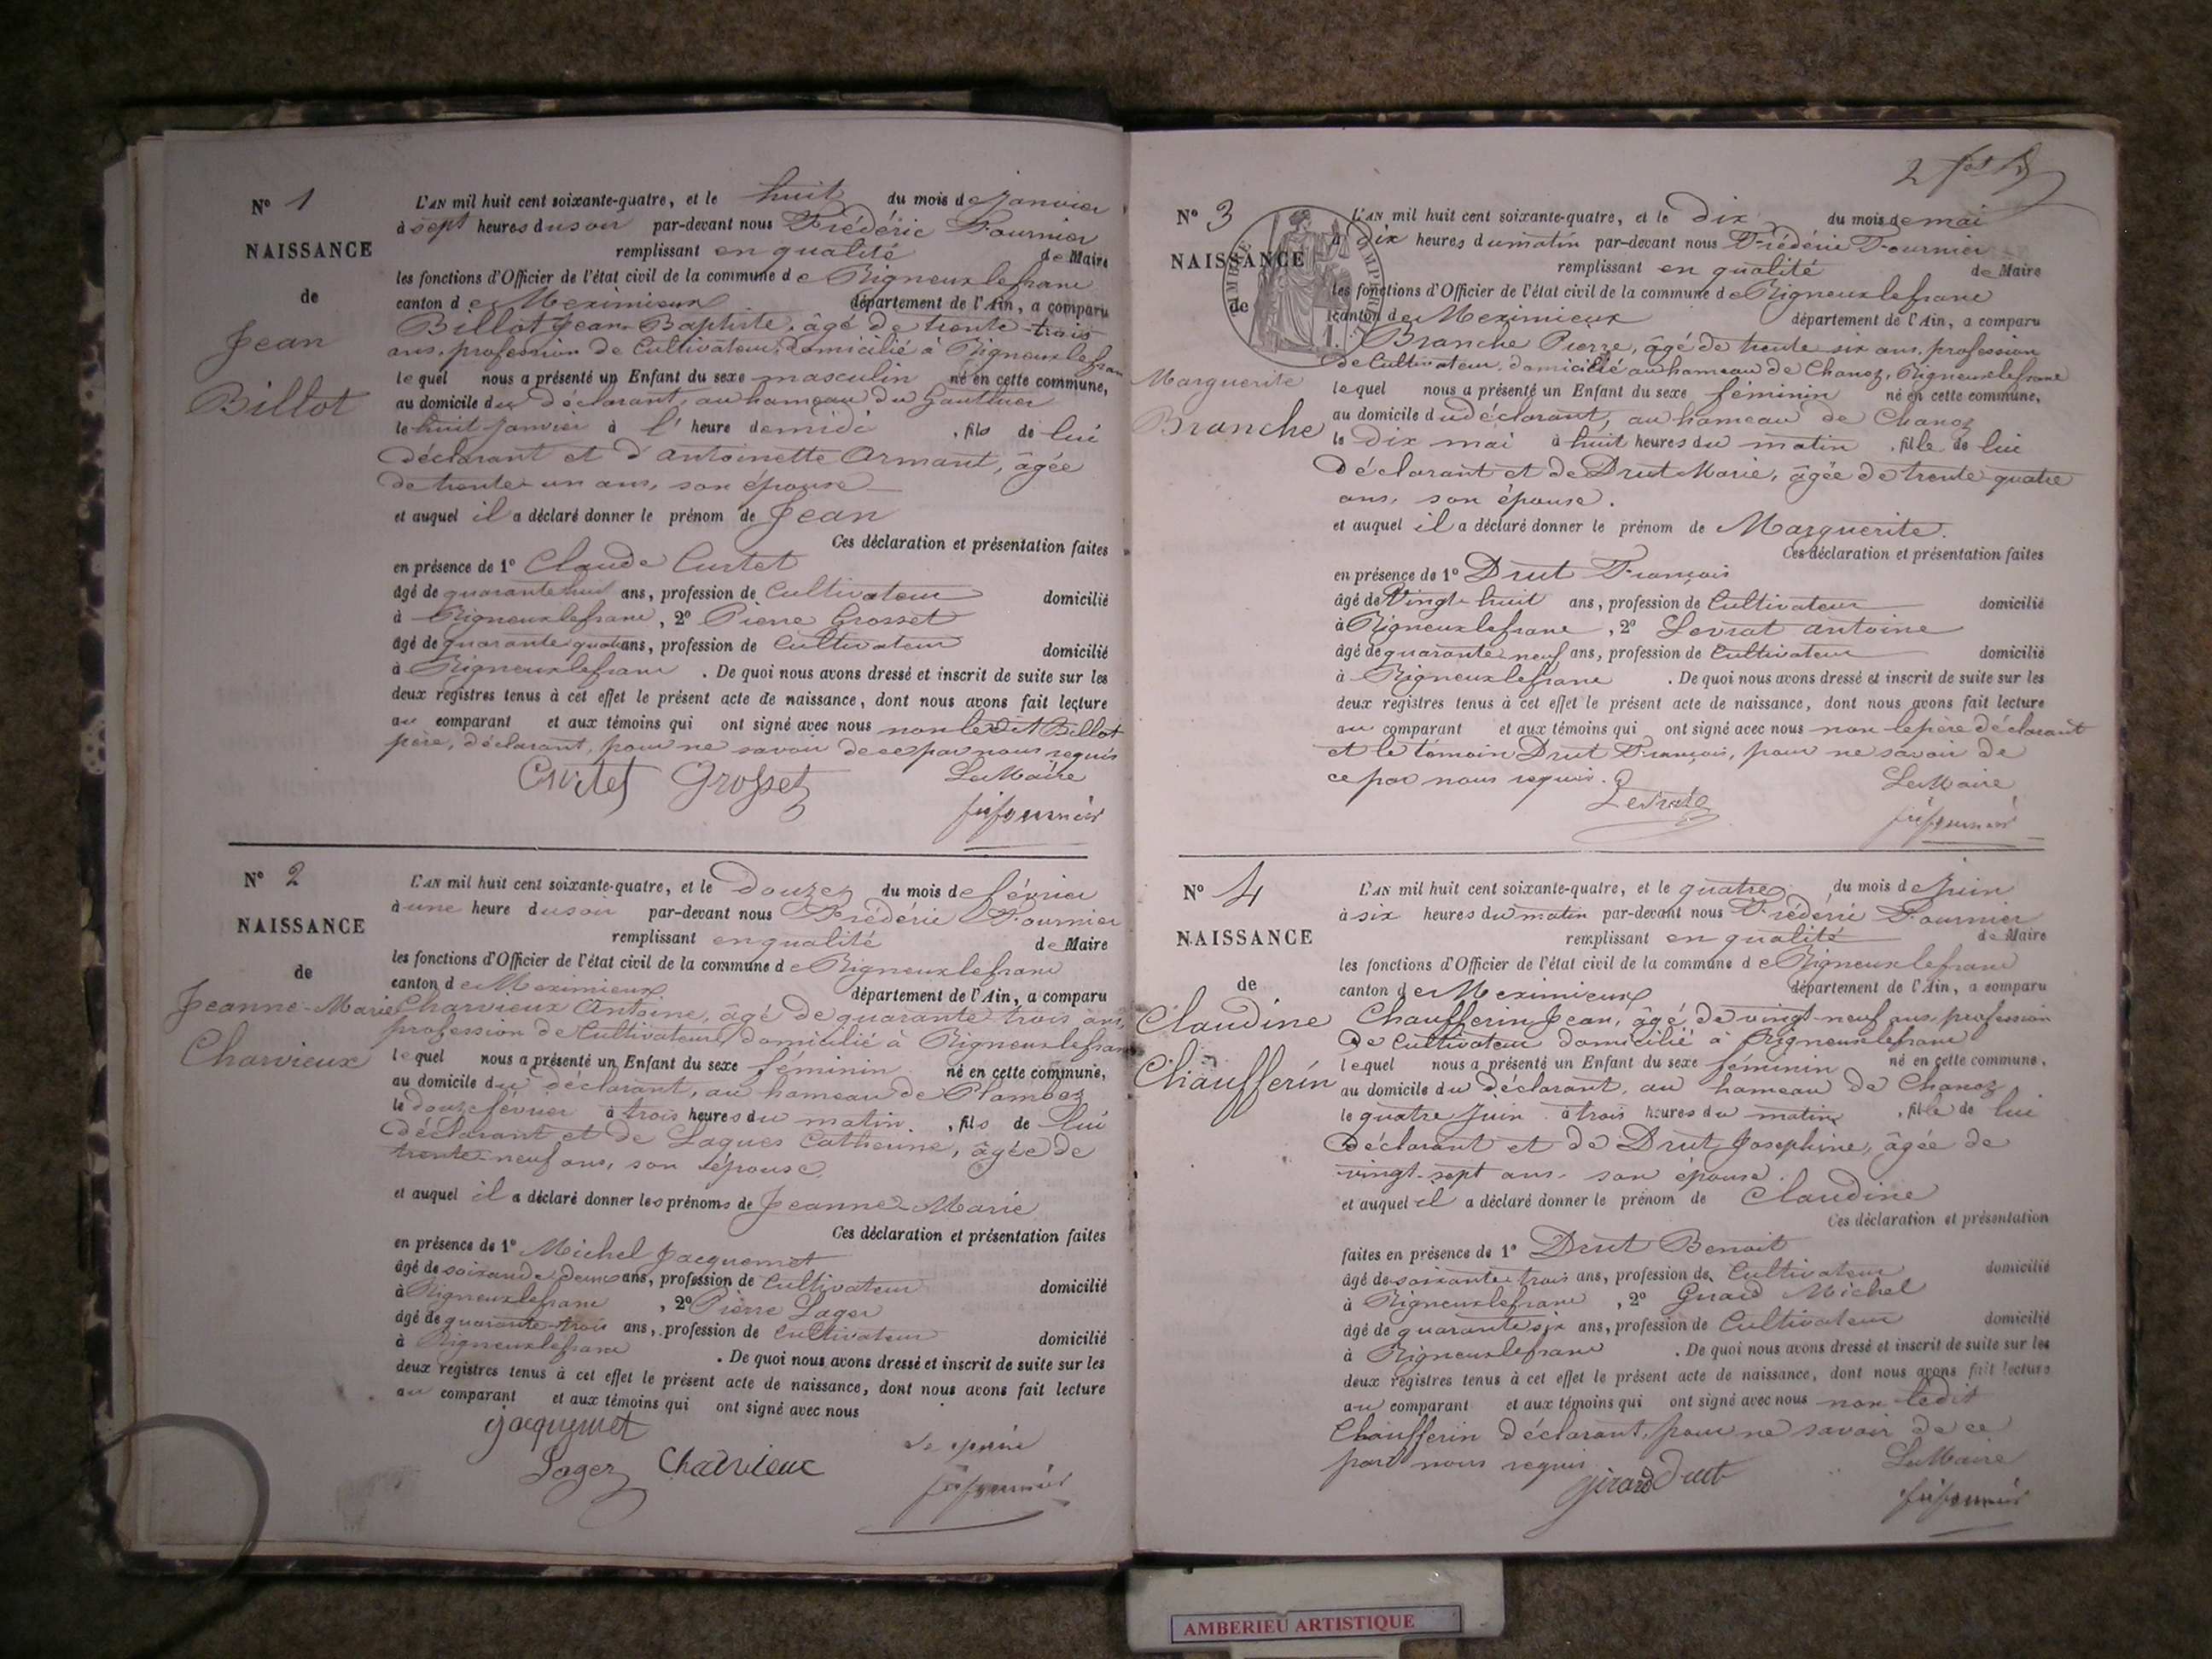 N° 1
NAISSANCE
de
Jean
Billot
L'AN mil huit cent soixante-quatre, et le huit du mois de Janvier
à sept heures du soir par-devant nous Frédéric Fournier
remplissant en qualité de Maire
les fonctions d'Officier de l'état civil de la commune de Rigneuxlefranc
canton de Meximieux département de l'Ain, a comparu
Billot Jean-Baptiste, âgé de trente-trois
ans, profession de Cultivateur, domicilié à Rigneuxlefran
lequel nous a présenté un Enfant du sexe masculin né en cette commune,
au domicile du déclarant, au hameau du
le huit Janvier à l'heure de midi, fils de lui
déclarant et d'antoinette Armant, âgée
de trente-un ans, son épouse
et auquel il a déclaré donner le prénom de Jean
Ces déclaration et présentation faites
en présence de 1° Claude Curtet
âgé de quarante huit ans, profession de Cultivateur domicilié
à Rigneuxlefranc, 2° Pierre Grosset
âgé de quarante quatre ans, profession de Cultivateur domicilié
à Rigneuxlefranc. De quoi nous avons dressé et inscrit de suite sur les
deux registres tenus à cet effet le présent acte de naissance, dont nous avons fait lecture
au comparant et aux témoins qui ont signé avec nous non ledit Billot
père, déclarant, pour ne savoir de ce par nous requis
Curtet Grosset Le Maire
fr fournier
N° 2
NAISSANCE
de
Jeanne-Marie
Charvieux
L'AN mil huit cent soixante-quatre, et le douze du mois de février
à une heure du soir par-devant nous Frédéric Fournier
remplissant en qualité de Maire
les fonctions d'Officier de l'état civil de la commune de Rigneuxlefranc
canton de Meximieux département de l'Ain, a comparu
Charvieux Antoine, âgé de quarante trois ans,
profession de Cultivateur, domicilié à Rigneuxlefranc
lequel nous a présenté un Enfant du sexe féminin né en cette commune,
au domicile du déclarant, au hameau de
le douze février à trois heures du matin, fils de lui
déclarant et de Laques Catherine, âgée de
trente-neuf ans, son épouse
et auquel il a déclaré donner les prénoms de Jeanne-Marie
Ces déclaration et présentation faites
en présence de 1° Michel Jacquemet
âgé de soixante deux ans, profession de Cultivateur domicilié
à Rigneuxlefranc, 2° Pierre Lager
âgé de quarante-trois ans, profession de Cultivateur domicilié
à Rigneuxlefranc. De quoi nous avons dressé et inscrit de suite sur les
deux registres tenus à cet effet le présent acte de naissance, dont nous avons fait lecture
au comparant et aux témoins qui ont signé avec nous
jacquemet
Lager Charvieux Le maire
fr fournier
N° 3
NAISSANCE
de
Marguerite
Branche
L'AN mil huit cent soixante-quatre, et le dix du mois de mai
à dix heures du matin par-devant nous Frédéric Fournier
remplissant en qualité de Maire
les fonctions d'Officier de l'état civil de la commune de Rigneuxlefranc
canton de Meximieux département de l'Ain, a comparu
Branche Pierre, âgé de trente six ans, profession
de Cultivateur, domicilié au hameau de Chanoz, Rigneuxlefranc
lequel nous a présenté un Enfant du sexe féminin né en cette commune,
au domicile du déclarant, au hameau de Chanoz
le dix mai à huit heures du matin, fille de lui
déclarant et de Drut Marie, âgée de trente quatre
ans, son épouse.
et auquel il a déclaré donner le prénom de Marguerite.
Ces déclaration et présentation faites
en présence de 1° Drut François
âgé de Vingt huit ans, profession de Cultivateur domicilié
à Rigneuxlefranc, 2° Levrat antoine
âgé de quarante neuf ans, profession de Cultivateur domicilié
à Rigneuxlefranc. De quoi nous avons dressé et inscrit de suite sur les
deux registres tenus à cet effet le présent acte de naissance, dont nous avons fait lecture
au comparant et aux témoins qui ont signé avec nous non le père déclarant
et le témoin Drut François, pour ne savoir de
ce par nous requis. Le Maire
Levrat fr fournier
N° 4
NAISSANCE
de
Claudine
Chaufferin
L'AN mil huit cent soixante-quatre, et le quatre du mois de Juin
à six heures du matin par-devant nous Frédéric Fournier
remplissant en qualité de Maire
les fonctions d'Officier de l'état civil de la commune de Rigneuxlefranc
canton de Meximieux département de l'Ain, a comparu
Chaufferin Jean, âgé de vingt-neuf ans, profession
de Cultivateur domicilié à Rigneuxlefranc
lequel nous a présenté un Enfant du sexe féminin né en cette commune,
au domicile du déclarant, au hameau de Chanoz
le quatre Juin à trois heures du matin, fille de lui
déclarant et de Drut Josephine, âgée de
vingt-sept ans, son épouse.
et auquel il a déclaré donner le prénom de Claudine
Ces déclaration et présentation
faites en présence de 1° Drut Benoit
âgé de soixante trois ans, profession de Cultivateur domicilié
à Rigneuxlefranc, 2° Girard Michel
âgé de quarante six ans, profession de Cultivateur domicilié
à Rigneuxlefranc. De quoi nous avons dressé et inscrit de suite sur les
deux registres tenus à cet effet le présent acte de naissance, dont nous avons fait lecture
au comparant et aux témoins qui ont signé avec nous non ledit
Chaufferin déclarant, pour ne savoir de ce
par nous requis Le Maire
girard Drut fr fournier
AMBERIEU ARTISTIQUE